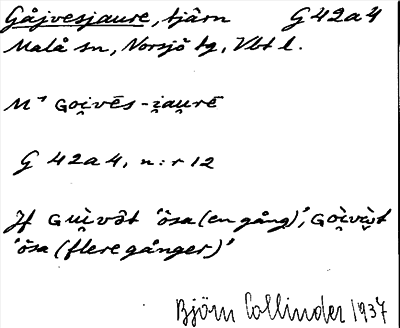 Gåjvesjaure, tjärn G 42a4
Malå sn, Norsjö tg, Vbt l.
Goi̯vēs-i̯au̯rē
G 42a4, n:r 12
Jf Guìvət 'ösa (en gång)',
'ösa (flere gånger)'
Björn Collinder 1937